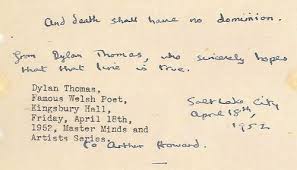 And death shall have no dominion.
from Dylan Thomas, who sincerely hopes
that that line is true.
Dylan Thomas,
Famous Welsh Poet,
Kingsbury Hall,
Friday, April 18th,
1952, Master Minds and
Artists Series.
Salt Lake City
April 18th,
1952
to Arthur Howard.